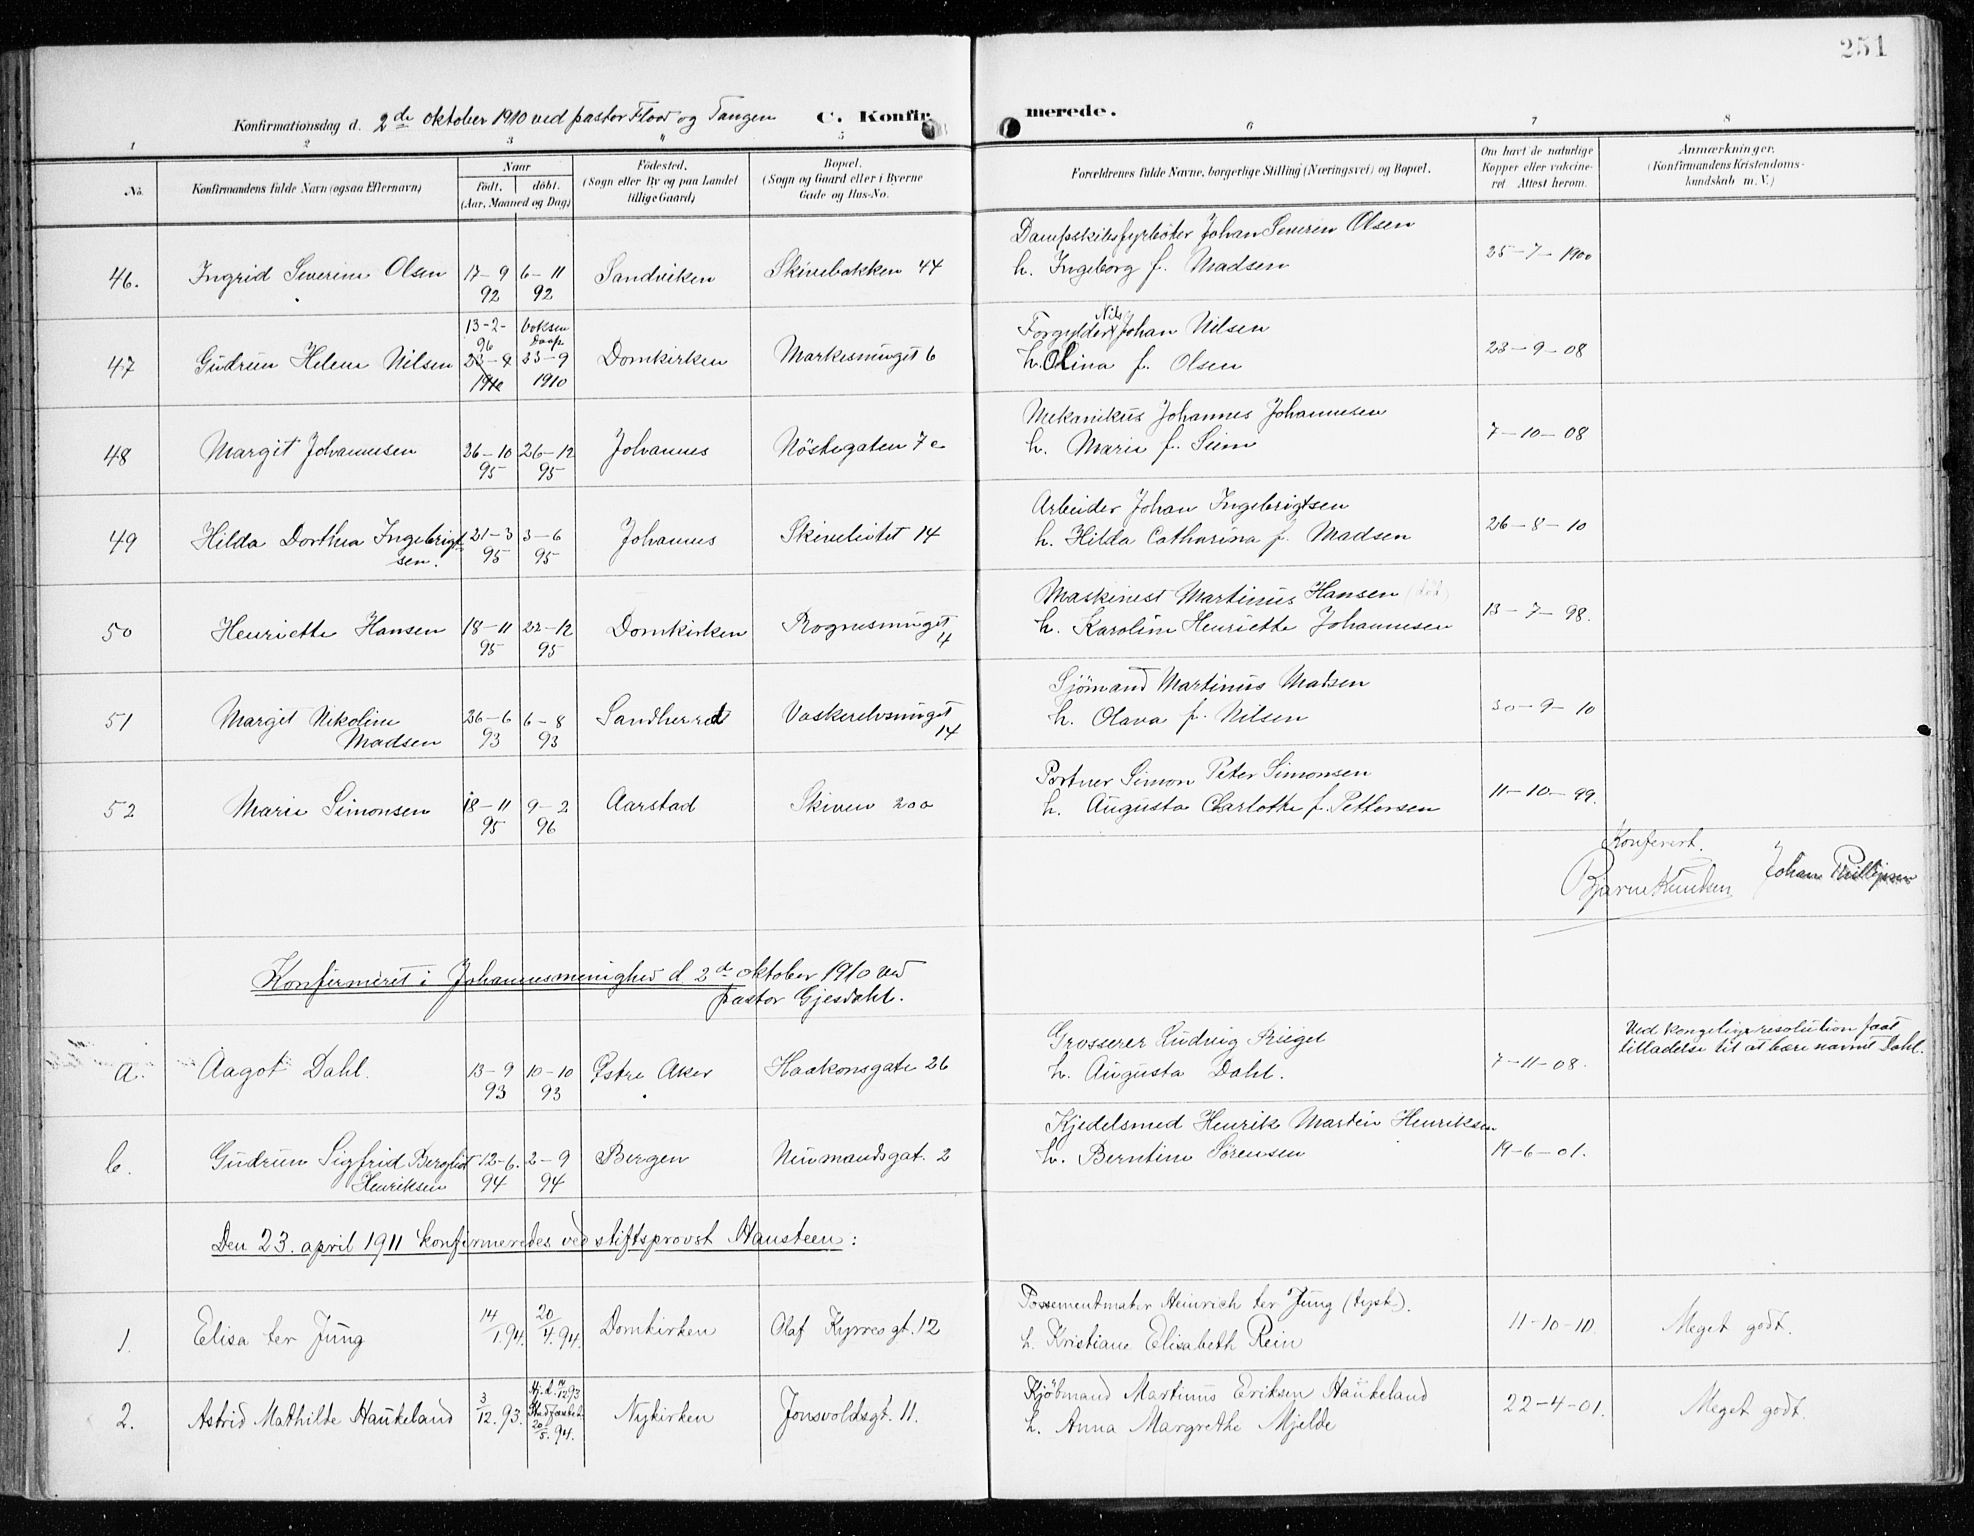 251
Konfirmationsdag d. 2de oktober 1910 ved pastor Floor og Tangen C. Konfirmerede.
1 2 3 4 5 6 7 8
No. Konfirmandens fulde Navn (ogsaa Efternavn) Naar født, døbt. (Aar, Maaned og Dag) Födested. (Sogn eller By og paa Landet tillige Gaard) Bopæl. (Sogn og Gaard eller i Byerne Gade og Hus-No. Forældrenes fulde Navne, borgerlige Stilling (Næringsvei) og Bopæl. Om havt de naturlige Kopper eller vakcineret Attest herom. Anmærkninger. (Konfirmandens Kristendomskundskab m. V.)
46. Ingrid Severine Olsen 17-9 92 6-11 92 Sandviken Skivebakken 44 Dampskibsfyrböter Johan Severin Olsen
h. Ingeborg f. Madsen 25-7-1900
47 Gudrun Helene Nilsen 13-2-96 23-9 1910 voksen Daap 23-9 1910 Domkirken Markesmuget 6 Forgylder Nils Johan Nilsen
h. Olina f. Olsen 23-9-08
48 Margit Johannesen 26-10 95 26-12 95 Johannes Nöstegaten 7 c Mekanikus Johannes Johannesen
h. Marie f. Seim 7-10-08
49 Hilda Dorthea Ingebrigtsen. 21-3 95 3-6 95 Johannes Skivelivtet 14 Arbeider Johan Ingebrigtsen
h. Hilda Catharina f. Madsen 26-8-10
50 Henriette Hansen 18-11 95 22-12 95 Domkirken Rognesmuget 4 Maskinist Martinus Hansen (död)
h. Karoline Henriette Johannesen 13-7-98.
51 Margit Nikoline Madsen 26-6 93 6-8 93 Sandherred Vaskerelvsmuget 14 Sjömand Martinus Madsen
h. Olava f. Nilsen 30-9-10
52 Marie Simonsen 18-11 95 9-2 96 Aarstad Skiven 20 a Portner Simon Peter Simonsen
h. Augusta Charlotte f. Pettersen 11-10-99.
Konferert.
Bjarne Knudsen Johan Phillipsen
Konfirmeret i Johannesmenighed d. 2de oktober 1910 ved
pastor Gjesdahl.
a. Aagot Dahl. 13-9 93 10-10 93 Østre Aker Haakonsgate 26 Grosserer Ludvig Riiget
h. Augusta Dahl. 7-11-08. Ved kongelig resolution faat
tilladelse til at bære navnet Dahl.
b. Gudrun Sigfrid Bergliot Henriksen 12-6. 94 2-9 94 Bergen Neumandsgat. 2 Kjedelsmed Henrik Martin Henriksen
h. Berntine Sörensen 19-6-01.
Den 23. april 1911 konfirmeredes ved stiftsprovst Hansteen:
1. Elisa ter Jung 14/1.94. 20/4.94. Domkirken Olaf Kyrres gt. 12 Possementmaker Heinrich ter Jung (tysk).
h. Kristiane Elisabeth Rein 11-10-10. Meget godt.
2. Astrid Mathilde Haukeland 3/12.93. Hj.d. 14/12 93 Stadfæstet 20/5.94. Nykirken Jonsvoldsgt. 11. Kjöbmand Martinus Eriksen Haukeland
h. Anna Margrethe Mjelde 22-4-01. Meget godt.